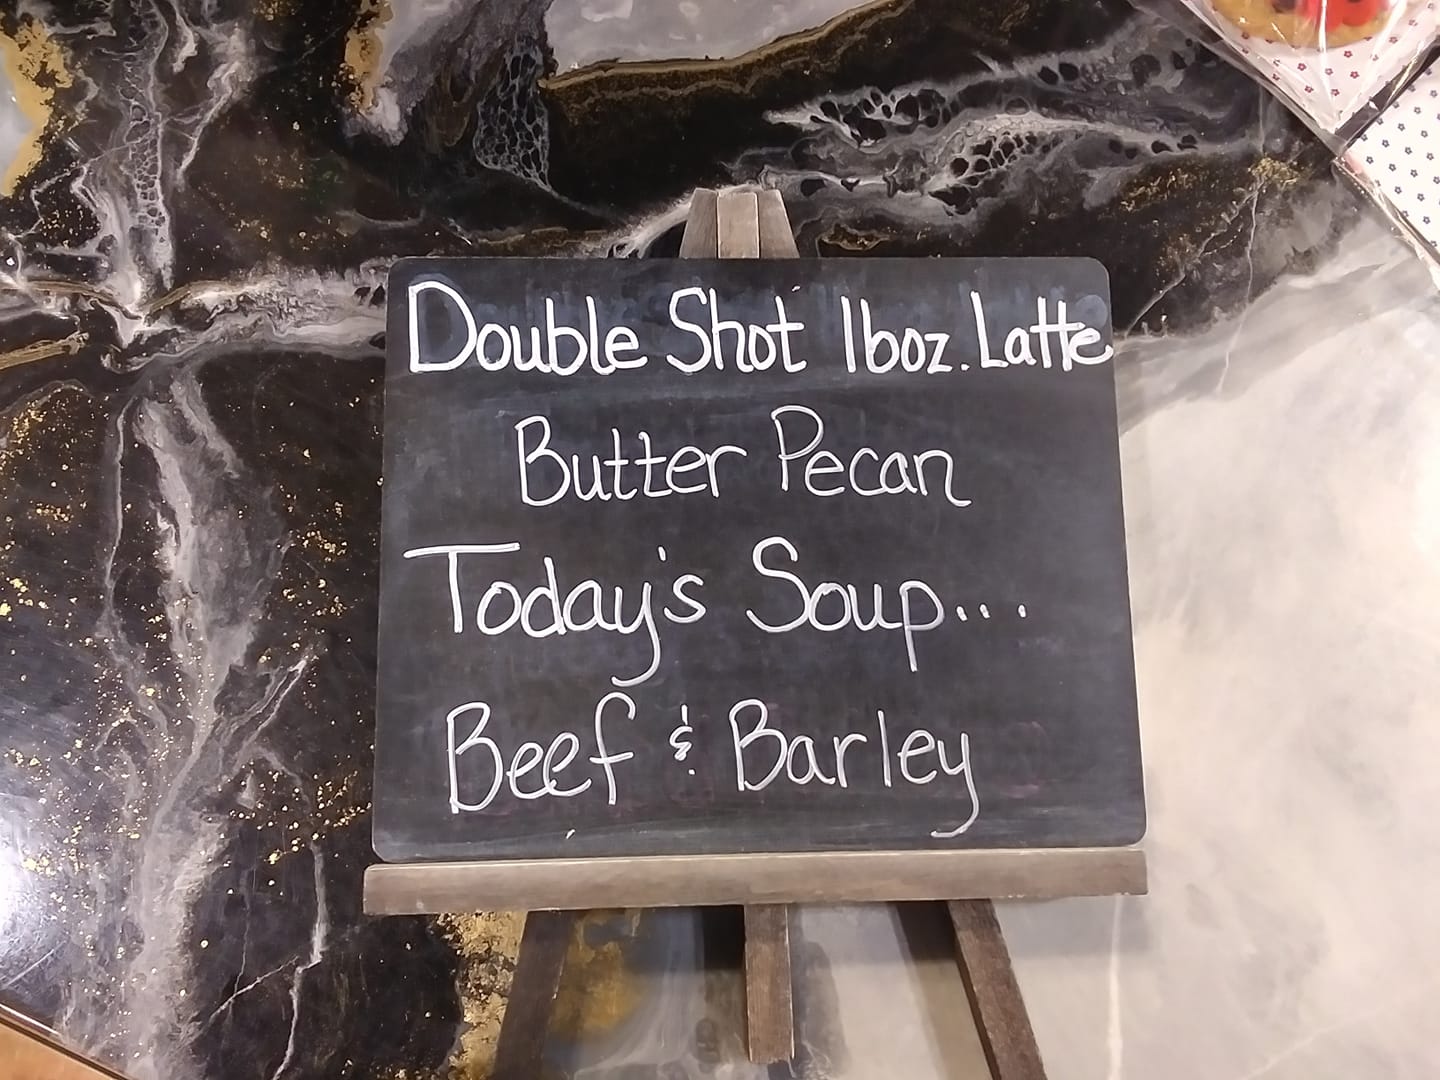 Double Shot 16oz. Latte
Butter Pecan
Today's Soup...
Beef & Barley